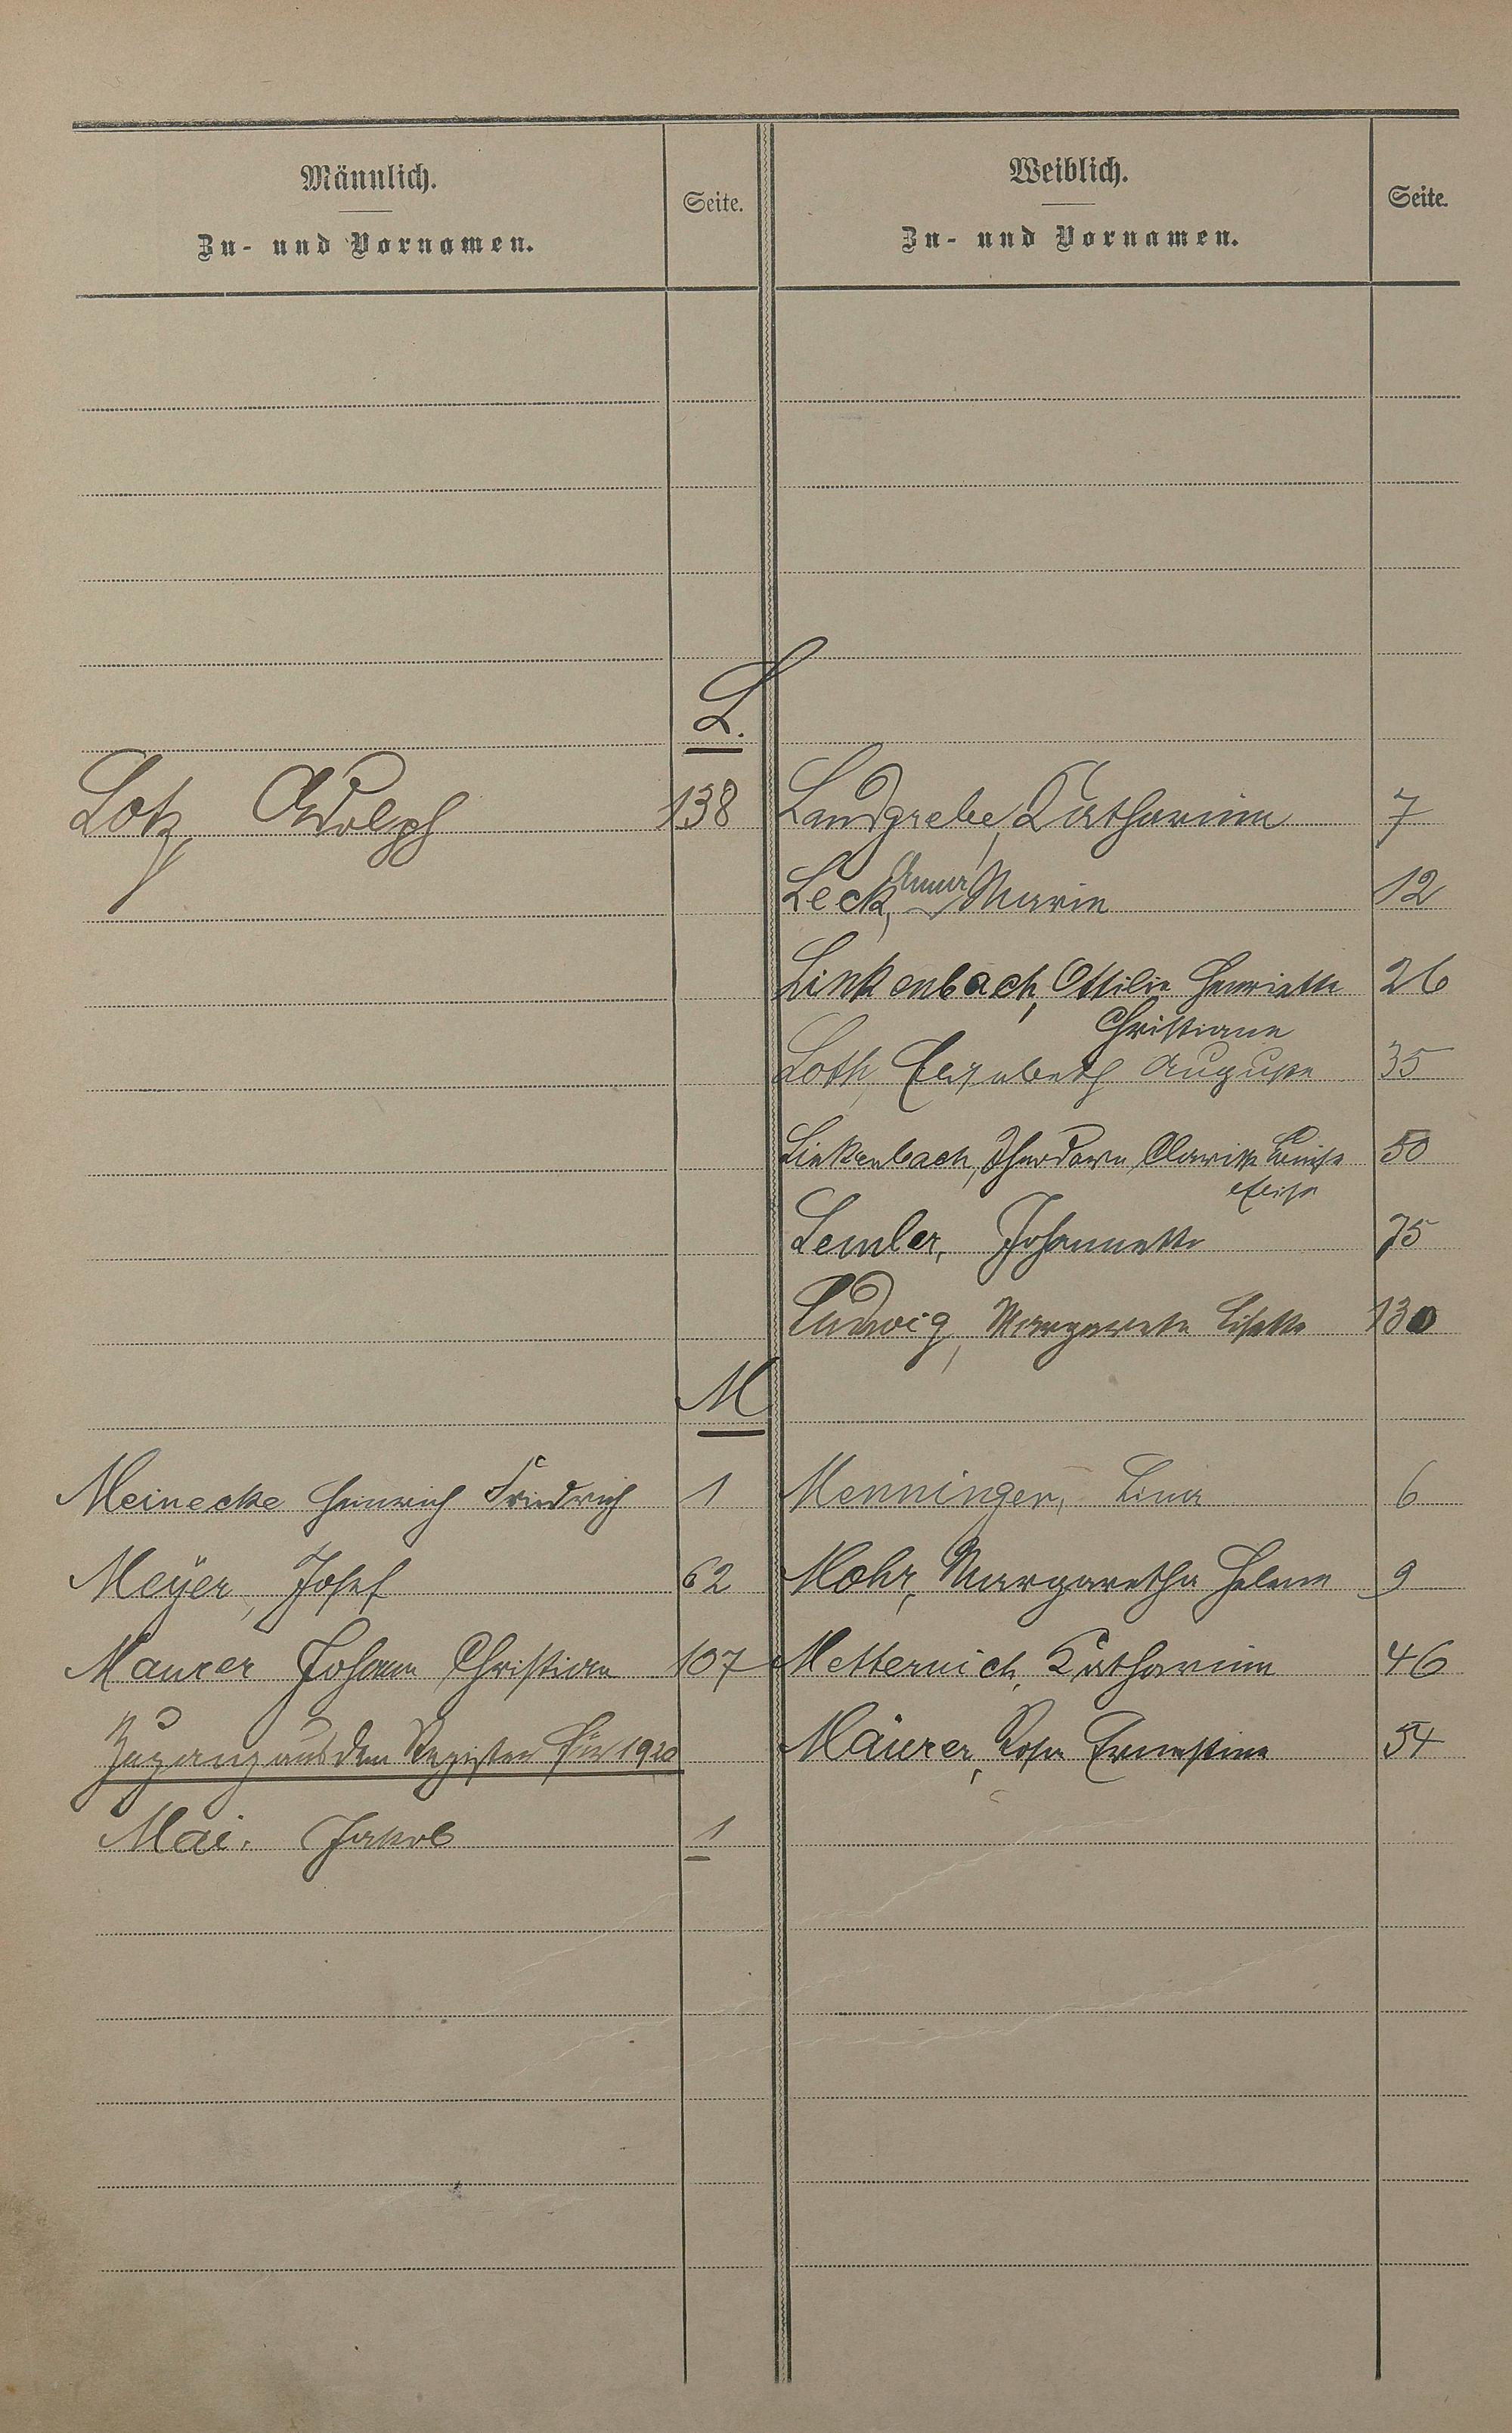 Männlich.
Zu- und Vornamen.
Seite.
Weiblich.
Zu- und Vornamen.
Seite.
L.
Lotz, Adolph 138
Landgrebe, Katharina 7
Leck, Anna Marie 12
Linkenbach, Ottilie Henriette 26
Christiane
Loth, Elisabeth Auguste 35
Linkenbach, Theodore, Clarissa Luise 50
Elise
Lemler, Johannette 75
Ludwig, Margarete Lisette 130
M
Meinecke Heinrich Friedrich 1
Menninger, Lina 6
Meyer, Josef 62
Mohr, Margaretha Helene 9
Maurer Johann Christian 107
Metternich, Katharina 46
Zugang aus dem Register für 1920
Mäurer, Rosa Ernestine 54
Mai. Jakob 1